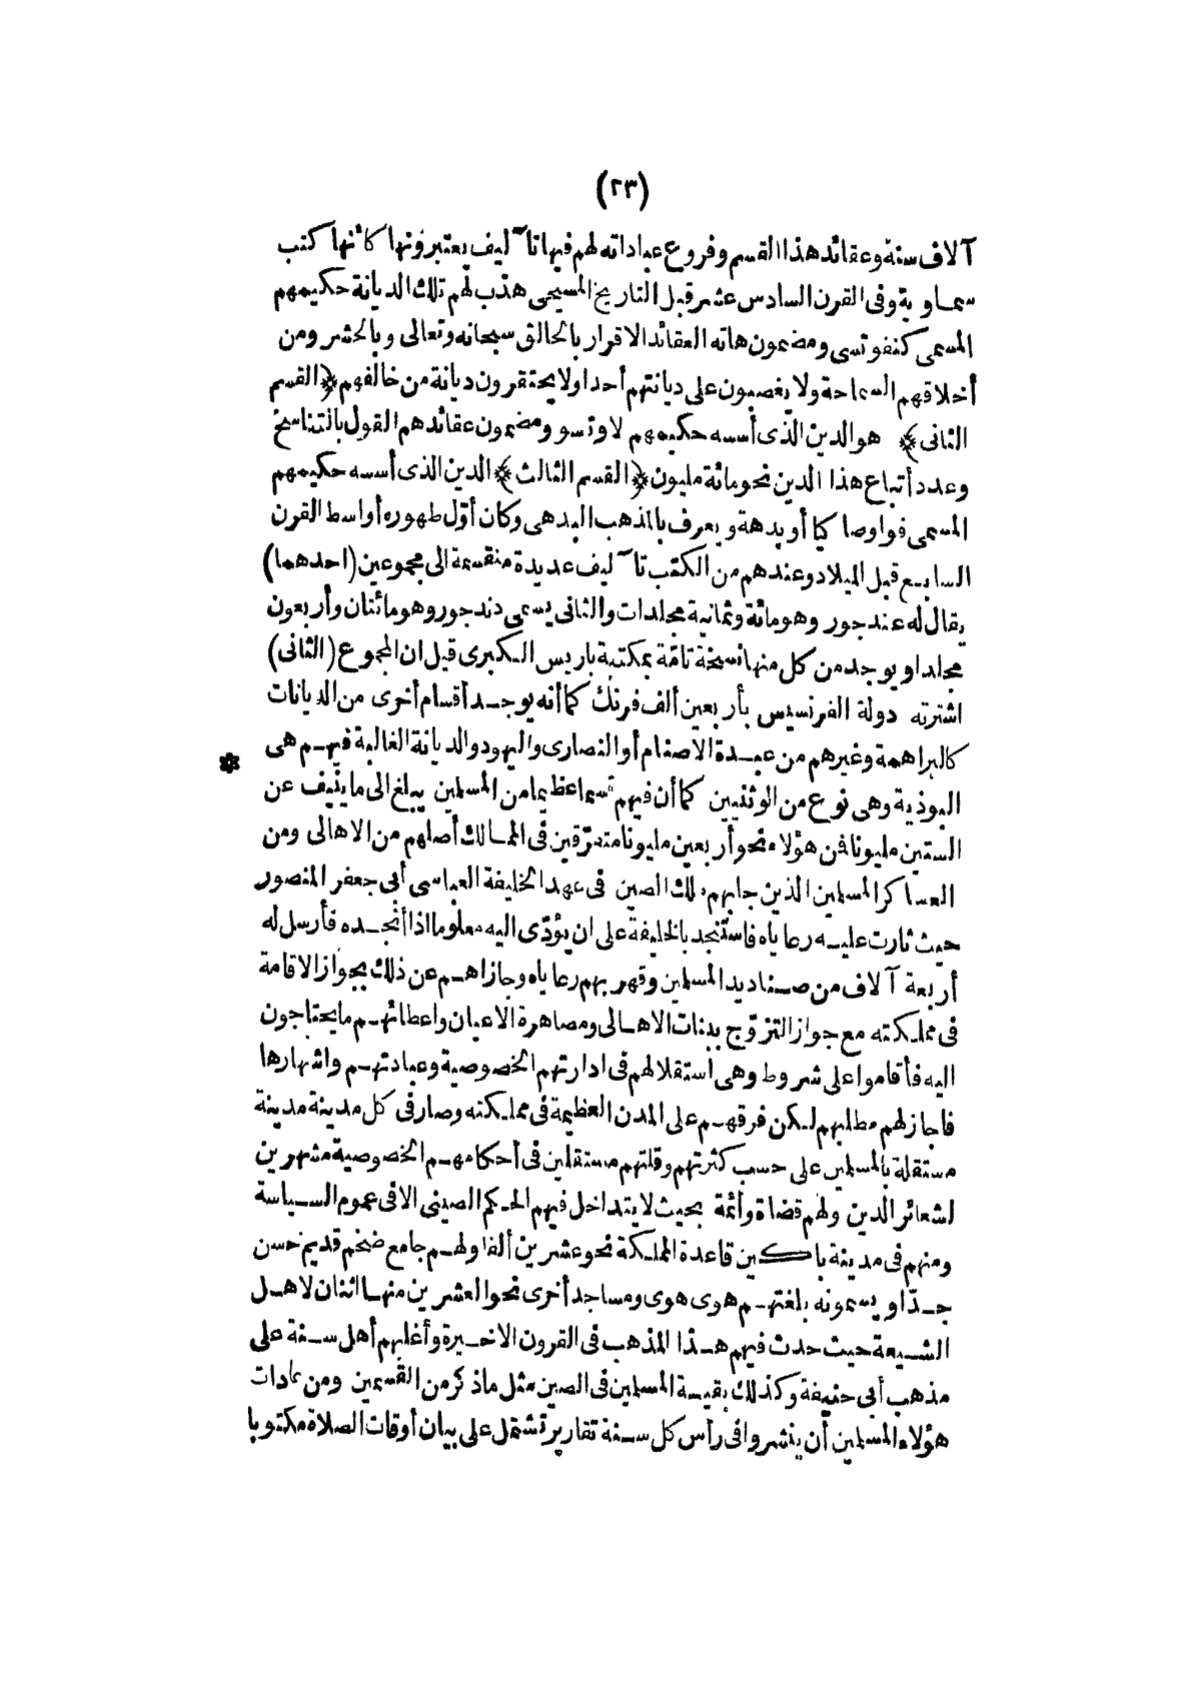 (٢٣)
آلاف سنة وعقائد هذا القسم وفروع عباداته لهم فيها تآليف يعتبرونها كأنها كتب
سماوية وفى القرن السادس عشر قبل التاريخ المسيحى هذب لهم تلك الديانة حكيمهم
المسمى كنفوتسى ومضمون هاته العقائد الاقرار بالخالق سبحانه وتعالى وبالحشر ومن
أخلاقهم السماحة ولا يغصبون على ديانتهم أحدا ولا يحتقرون ديانة من خالفهم ﴿القسم
الثانى﴾ هو الدين الذى أسسه حكيمهم لاوتسو ومضمون عقائدهم القول بالتناسخ
وعدد أتباع هذا الدين نحو مائة مليون ﴿القسم الثالث﴾ الدين الذى أسسه حكيمهم
المسمى فواوصاكيا أو بدهة ويعرف بالمذهب البدهى وكان أول ظهوره أواسط القرن
السابع قبل الميلاد وعندهم من الكتب تآليف عديدة منقسمة الى مجموعين (احدهما)
يقال له عندجور وهو مائة وثمانية مجلدات والثانى يسمى دندجور وهو مائتان وأربعون
مجلدا ويوجد من كل منها نسخة تامة بمكتبة باريس الكبرى قيل ان المجموع (الثانى)
اشترته دولة الفرنسيس بأربعين ألف فرنك كما أنه يوجد أقسام أخرى من الديانات
كالبراهمة وغيرهم من عبدة الاصنام أو النصارى واليهود والديانة الغالبة فيهم هى
*
البوذية وهى نوع من الوثنيين كما أن فيهم قسما عظيما من المسلمين يبلغ الى ما ينيف عن
الستين مليونا فمن هؤلاء نحو أربعين مليونا متفرقين فى الممالك أصلهم من الاهالى ومن
العساكر المسلمين الذين جلبهم ملك الصين فى عهد الخليفة العباسى أبى جعفر المنصور
حيث ثارت عليه رعاياه فاستنجد بالخليفة على ان يؤدى اليه معلوما اذا أنجده فأرسل له
أربعة آلاف من صناديد المسلمين وقهر بهم رعاياه وجازاهم عن ذلك بجواز الاقامة
فى مملكته مع جواز التزوج ببنات الاهالى ومصاهرة الاعيان واعطائهم ما يحتاجون
اليه فأقاموا على شروط وهى استقلالهم فى ادارتهم الخصوصية وعبادتهم واشهارها
فاجاز لهم مطلبهم لكن فرقهم على المدن العظيمة فى مملكته وصار فى كل مدينة مدينة
مستقلة بالمسلمين على حسب كثرتهم وقلتهم مستقلين فى أحكامهم الخصوصية مشهرين
لشعائر الدين ولهم قضاة وأئمة بحيث لا يتداخل فيهم الحكم الصينى الا فى عموم السياسة
ومنهم فى مدينة باكين قاعدة المملكة نحو عشرين ألفا ولهم جامع ضخم قديم حسن
جدا ويسمونه بلغتهم هوى هوى ومساجد أخرى نحو العشرين منها اثنان لاهل
الشيعة حيث حدث فيهم هذا المذهب فى القرون الاخيرة وأغلبهم أهل سنة على
مذهب أبى حنيفة وكذلك بقيسة المسلمين فى الصين مثل ماذكر من القسمين ومن عادات
هؤلاء المسلمين أن ينشروا فى رأس كل سنة تقارير تشتمل على بيان أوقات الصلاة مكتوبا